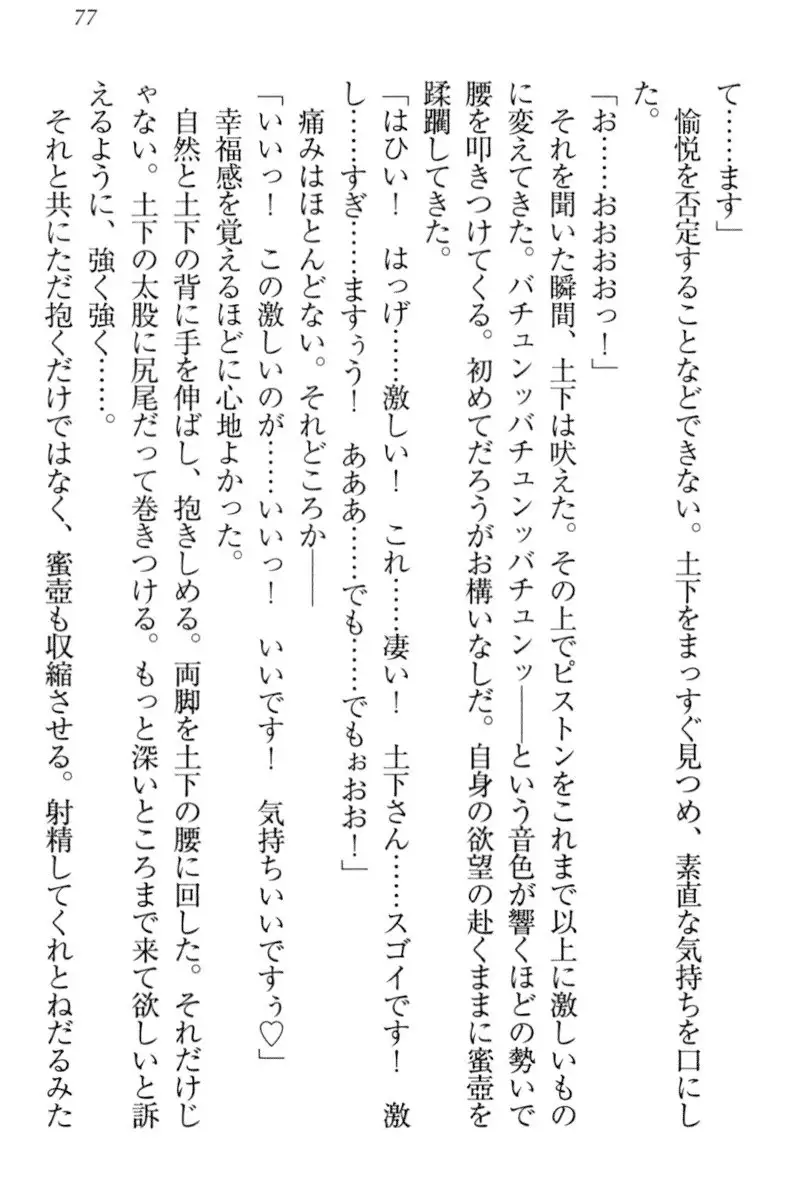 77
て……ます」
　愉悦を否定することなどできない。土下をまっすぐ見つめ、素直な気持ちを口にし
た。
「お……おおおおっ！」
　それを聞いた瞬間、土下は吠えた。その上でピストンをこれまで以上に激しいもの
に変えてきた。バチュンッバチュンッバチュンッ――という音色が響くほどの勢いで
腰を叩きつけてくる。初めてだろうがお構いなしだ。自身の欲望の赴くままに蜜壺を
蹂躙してきた。
「はひい！　はっげ……激しい！　これ……凄い！　土下さん……スゴイです！　激
し……すぎ……ますぅう！　あああ……でも……でもぉおお！」
　痛みはほとんどない。それどころか――
「いいっ！　この激しいのが……いいっ！　いいです！　気持ちいいですぅ♡」
　幸福感を覚えるほどに心地よかった。
　自然と土下の背に手を伸ばし、抱きしめる。両脚を土下の腰に回した。それだけじ
ゃない。土下の太股に尻尾だって巻きつける。もっと深いところまで来て欲しいと訴
えるように、強く強く……。
　それと共にただ抱くだけではなく、蜜壺も収縮させる。射精してくれとねだるみた